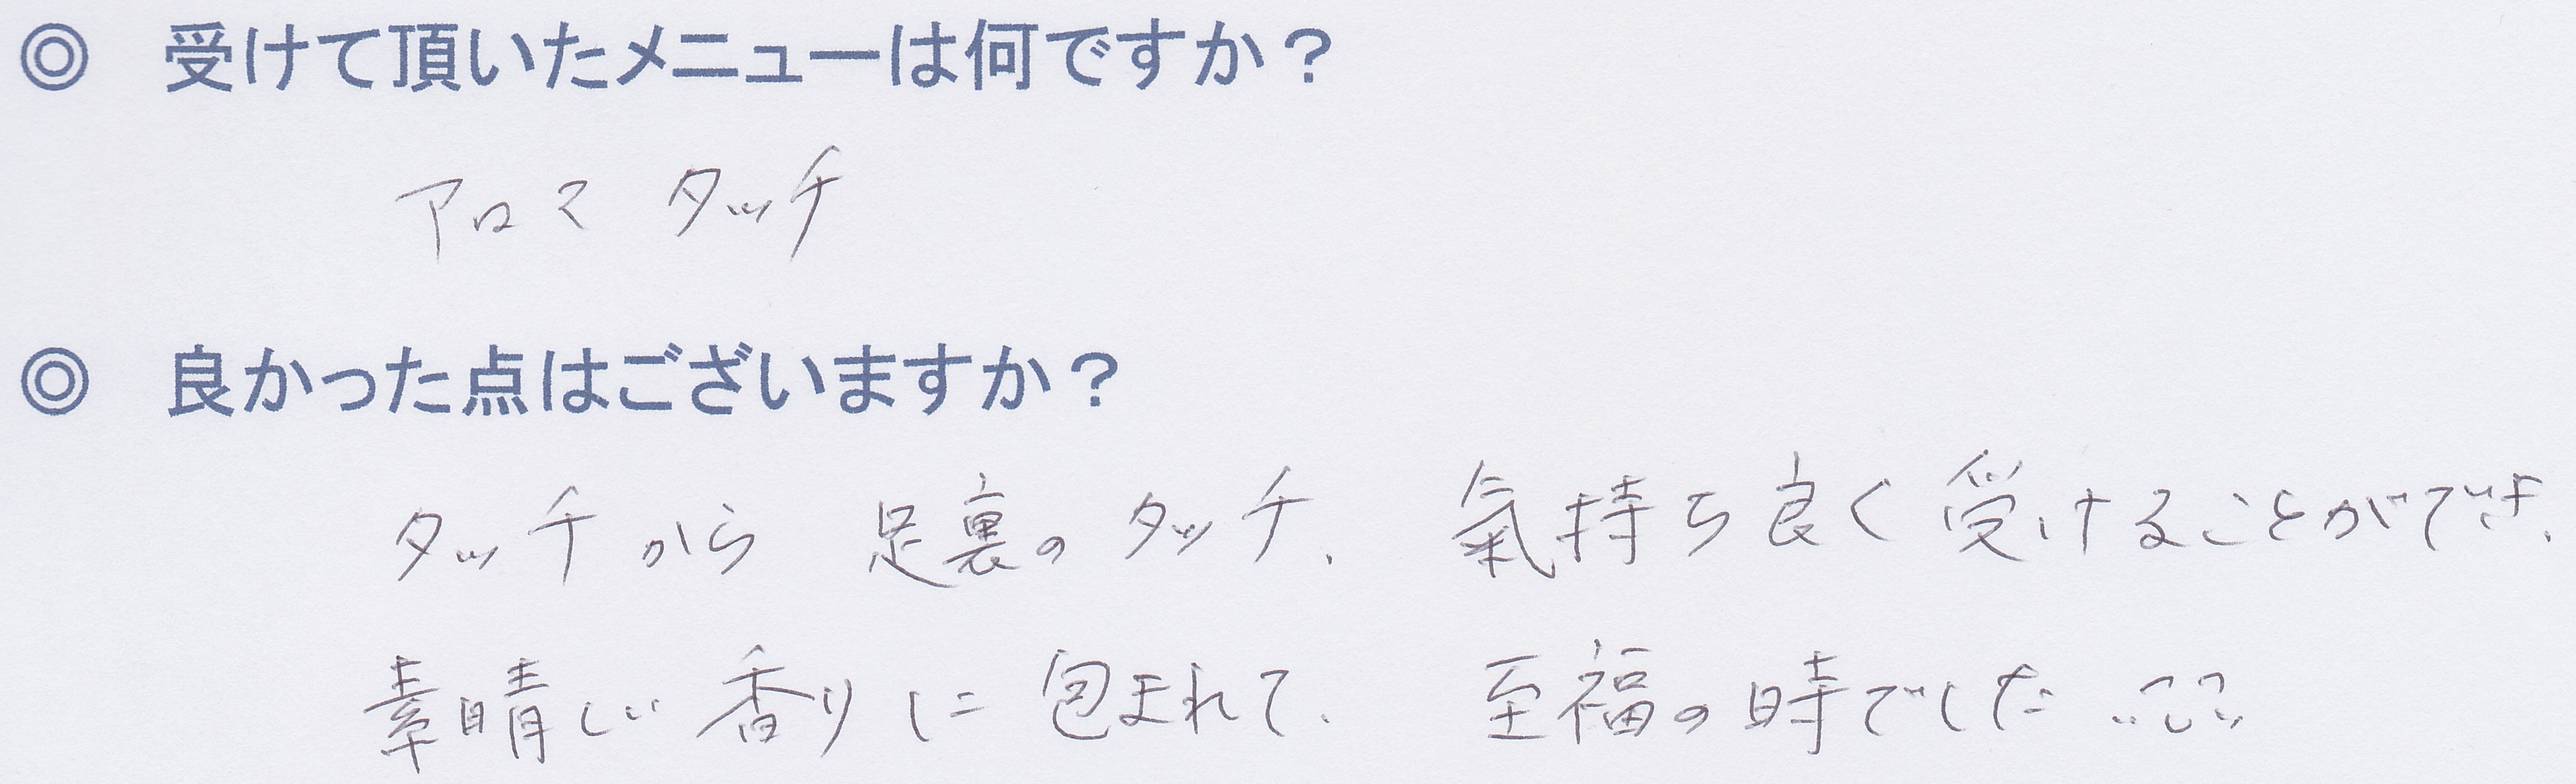 ◎ 受けて頂いたメニューは何ですか？
アロマ タッチ
◎ 良かった点はございますか？
タッチから 足裏のタッチ、 氣持ち良く受けることができ、
素晴しい香りに包まれて、 至福の時でした